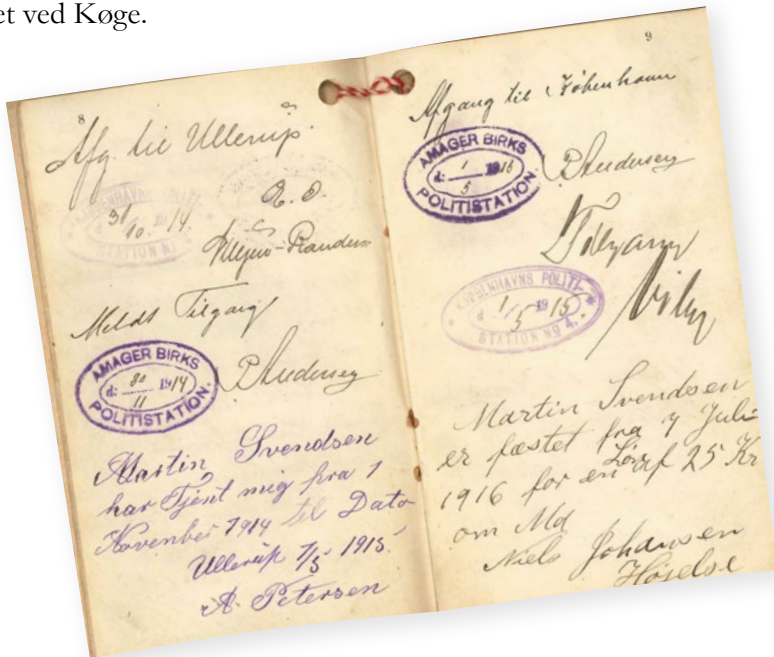 et ved Køge.
8
Afg. til Ullerup.
KØBENHAVNS POLITI-
31/10. 19 14.
STATION No 4.
Meldt Tilgang
AMAGER BIRKS
d: 30/11 1914
POLITISTATION.
P Andersen
Martin Svendsen
har Tjent mig fra 1
November 1914 til Dato
Ullerup 1/5 1915.
A. Petersen
9
Afgang til København
AMAGER BIRKS
d: 1/5 1916
POLITISTATION.
P Andersen
Tilgang
KØBENHAVNS POLITI-
d 1/5 19 15.
STATION No 4.
Martin Svendsen
er fæstet fra 7 Juli
1916 for en Løn af 25 Kr
om Md
Niels Johansen
Højelse